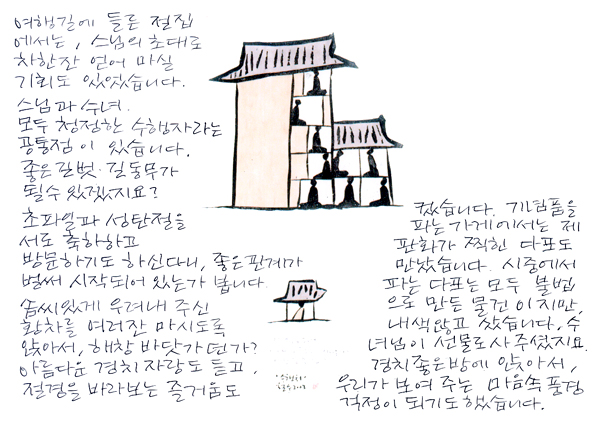 여행길에 들른 절집
에서는, 스님의 초대로
차한잔 얻어 마실
기회도 있었습니다.
스님과 수녀.
모두 청정한 수행자라는
공통점이 있습니다.
좋은길벗·길동무가
될수 있겠지요?
초파일과 성탄절을
서로 축하하고
방문하기도 하신다니, 좋은관계가
벌써 시작되어 있는가 봅니다.
솜씨있게 우려내 주신
황차를 여러잔 마시도록
앉아서, 해창 바닷가던가?
아름다운 경치 자랑도 듣고,
절경을 바라보는 즐거움도
컸습니다. 기념품을
파는 가게에서는 제
판화가 찍힌 다포도
만났습니다. 시중에서
파는 다포는 모두 불법
으로 만든 물건이지만,
내색않고 샀습니다. 수
녀님이 선물로 사주셨지요.
경치좋은방에 앉아서,
우리가 보여 주는 마음속풍경
걱정이 되기도했습니다.